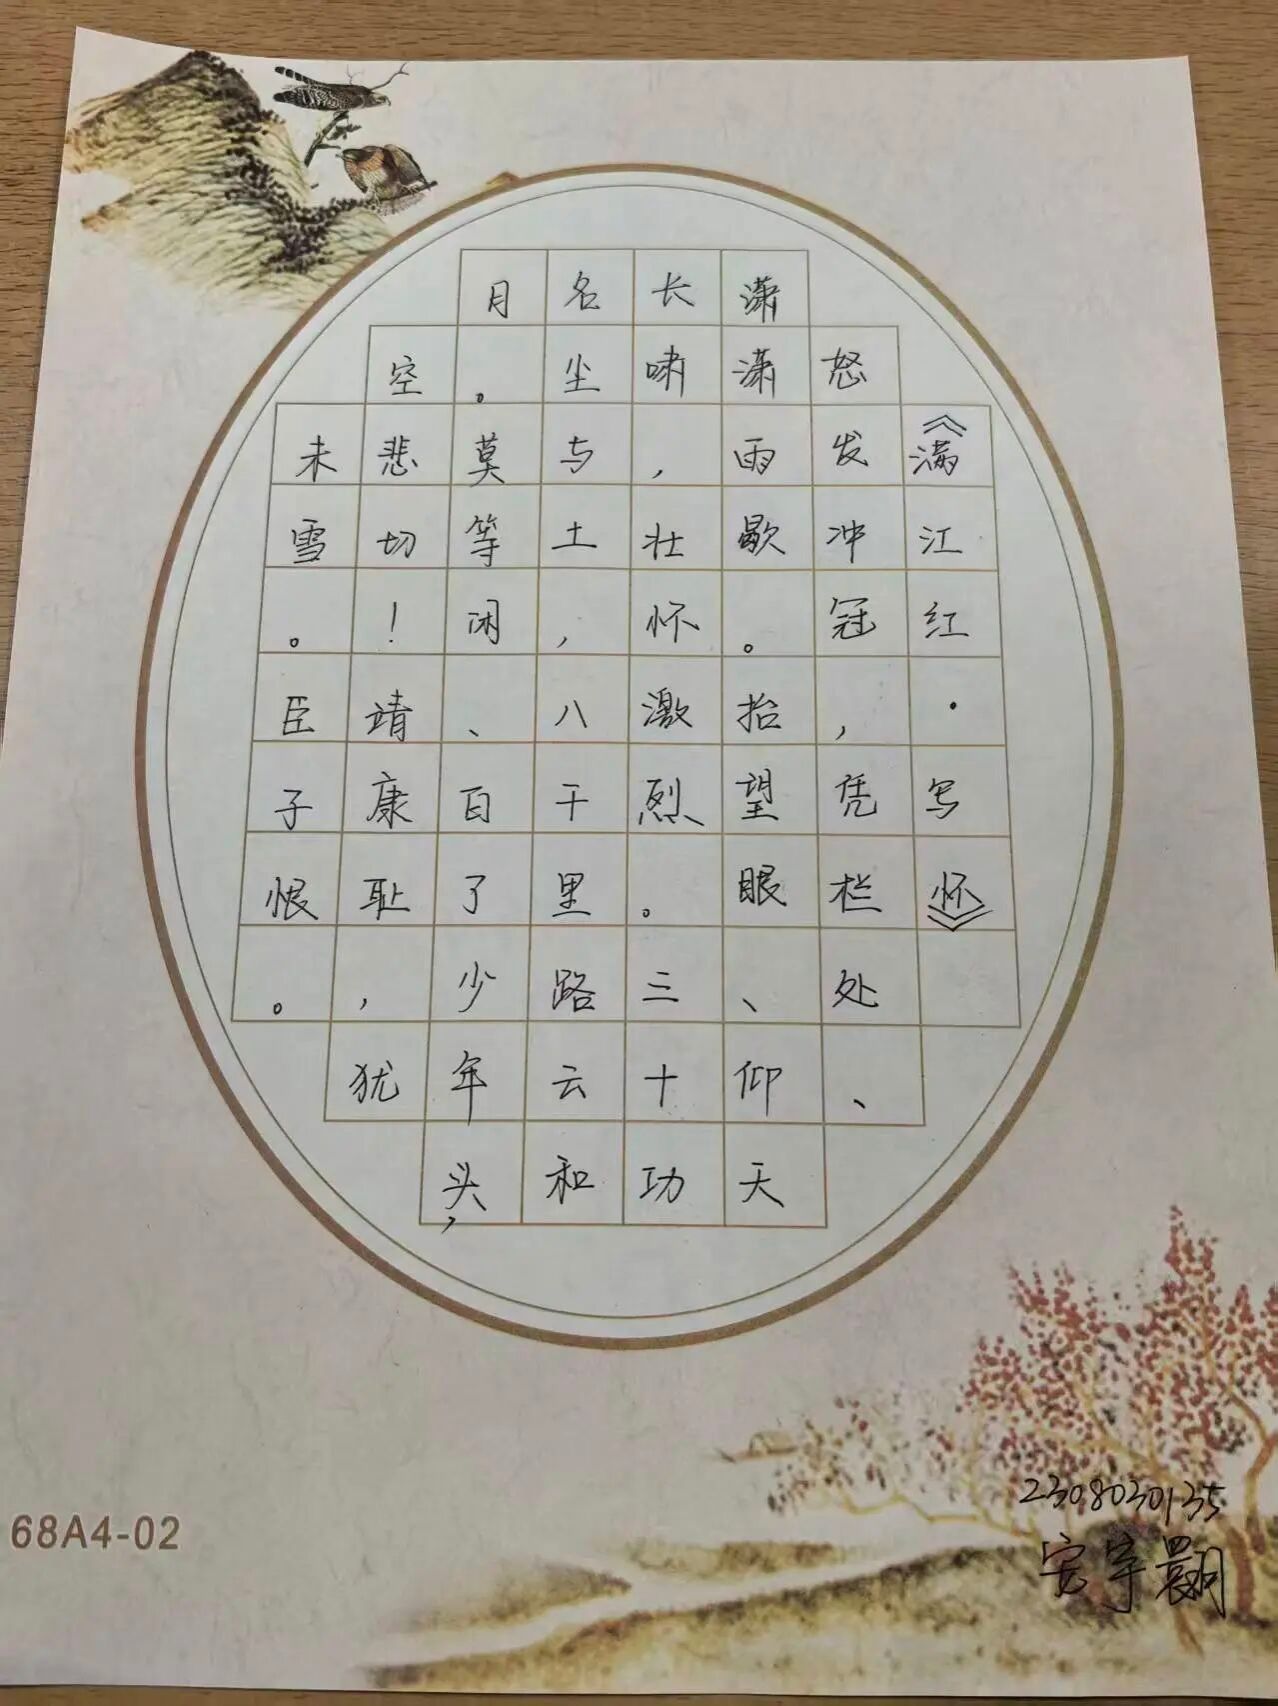 《满江红·写怀》
怒发冲冠，凭栏处、
潇潇雨歇。抬望眼、仰天
长啸，壮怀激烈。三十功
名尘与土，八千里路云和
月。莫等闲、白了少年头，
空悲切！靖康耻，犹
未雪。臣子恨。
68A4-02
2308030135
宇